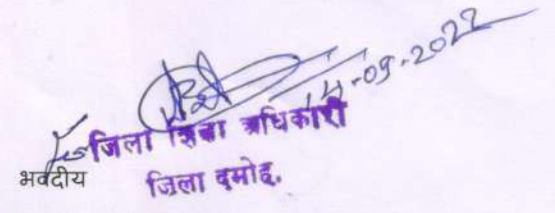 14-09-2022
जिला शिक्षा अधिकारी
भवदीय
जिला दमोह.